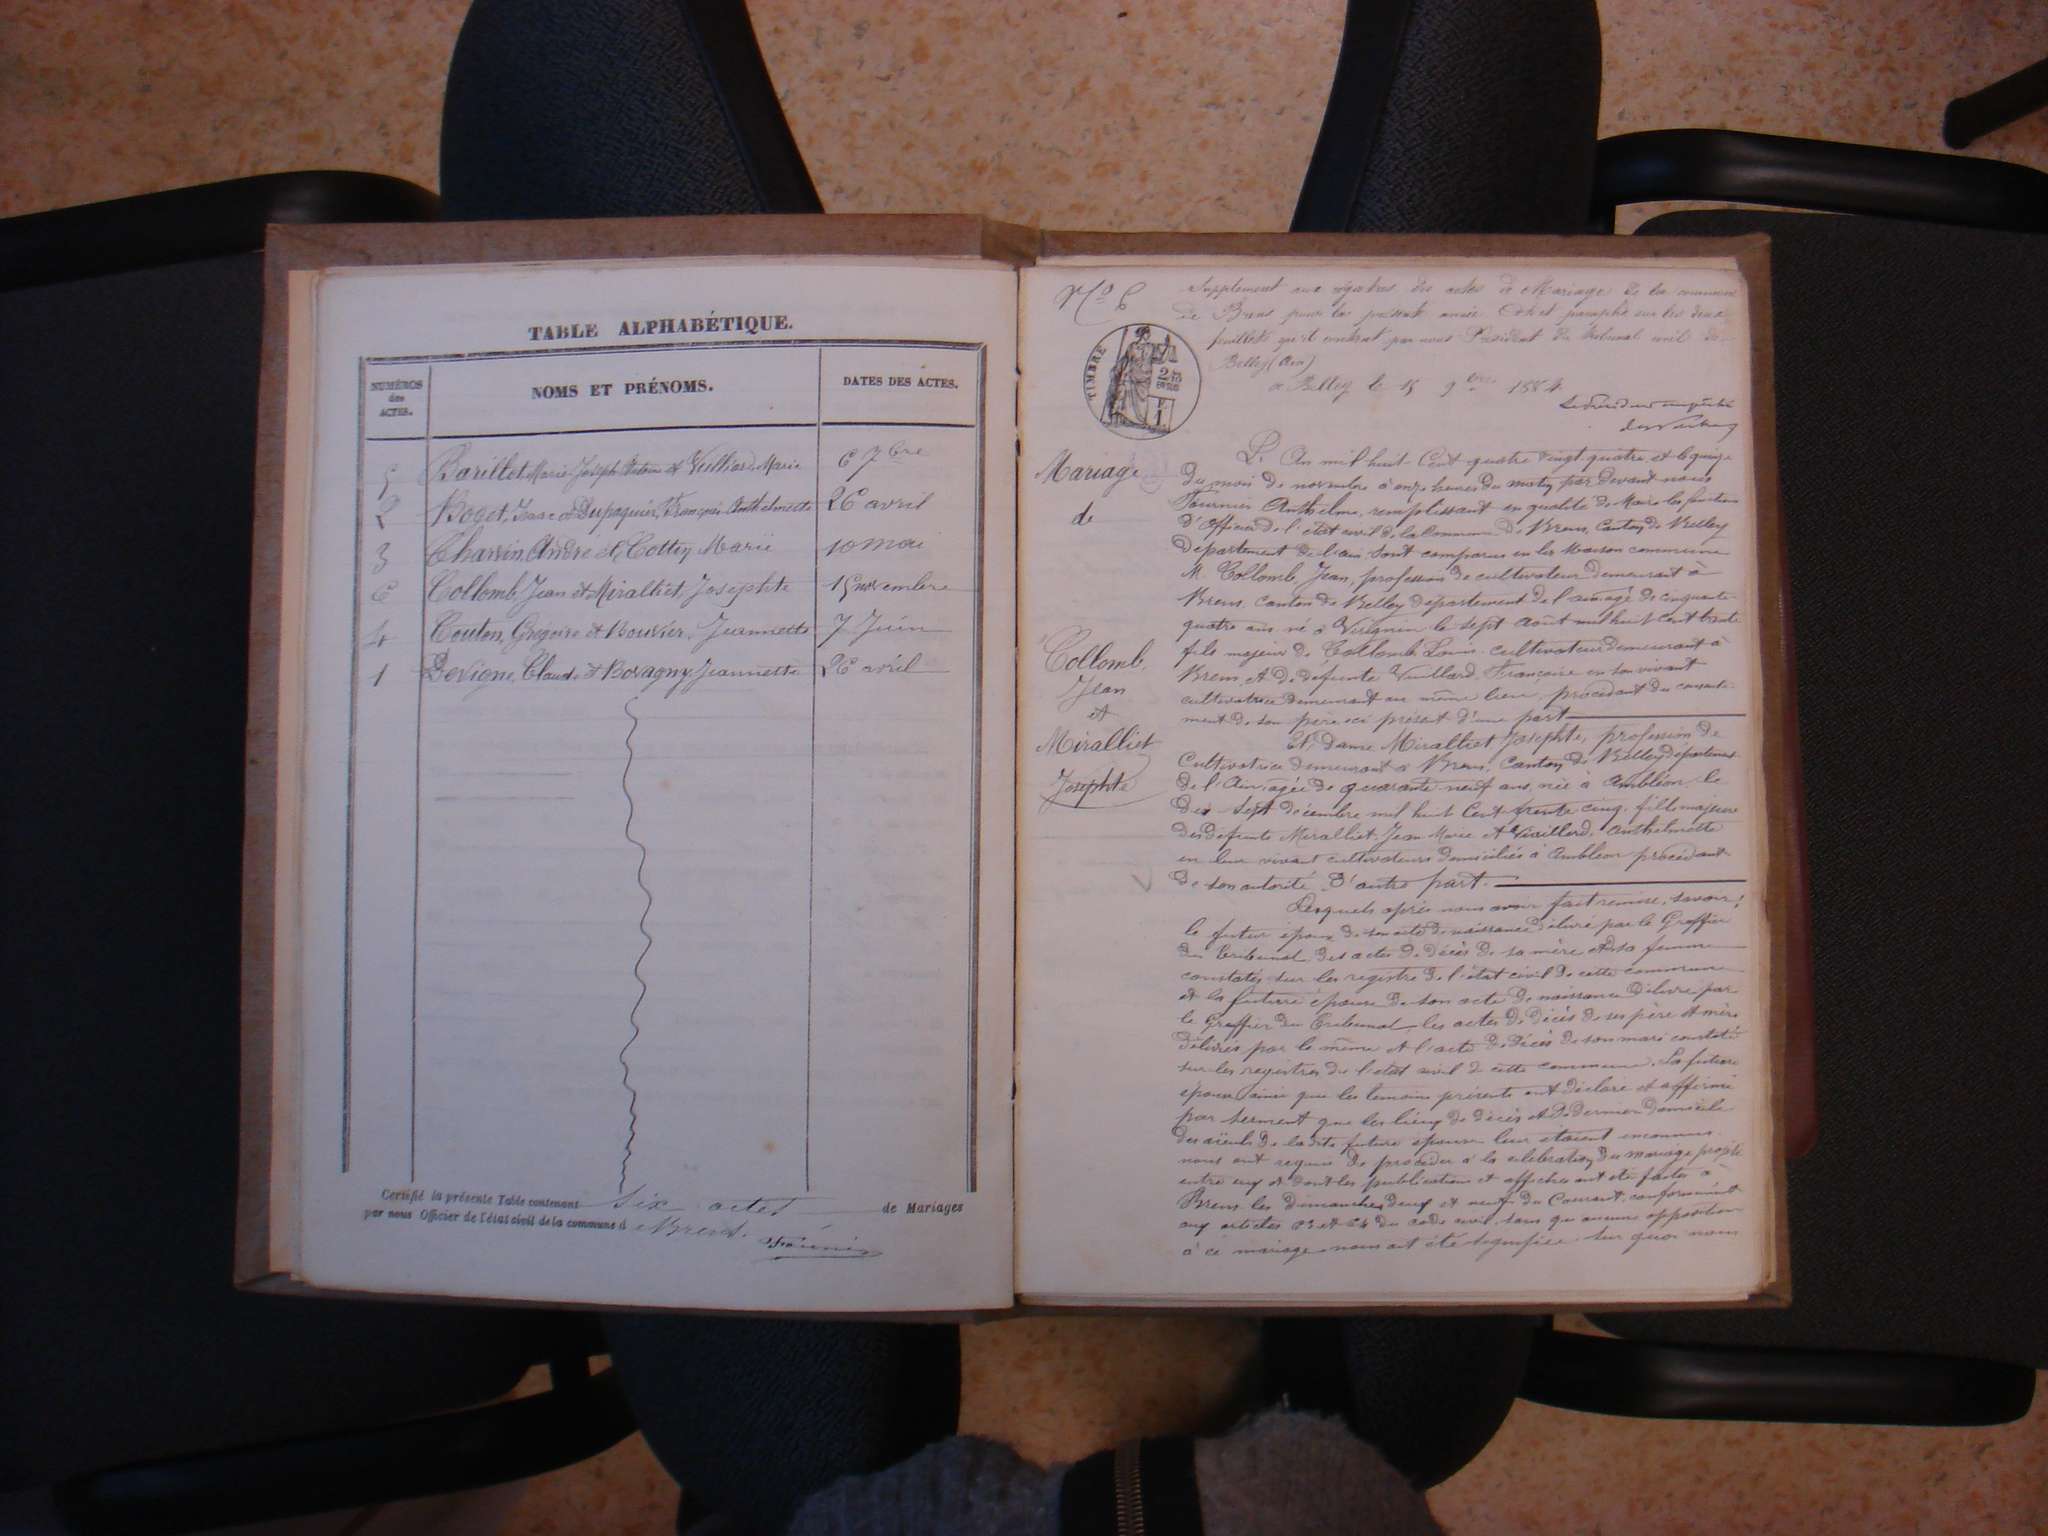 TABLE ALPHABÉTIQUE.
NUMÉROS des ACTES. NOMS ET PRÉNOMS. DATES DES ACTES.
5 Barillet Marie Joseph Antoine et Vuilliard Marie 6 7bre
2 Boget, Isaac et Dupaquier, François Anthelmette 26 avril
3 Charvin, André et Cottin Marie 10 mai
6 Collomb, Jean et Miralliet, Josephte 15 novembre
4 Couton, Grégoire et Bouvier, Jeannette 7 Juin
1 Devigne, Claude et Bovagny, Jeannette 26 avril
Certifié la présente Table contenant six actes de Mariages
par nous Officier de l'état civil de la commune d Brens.
No 6
Supplément aux registres des actes de Mariage de la commune
de Brens pour la présente année. Coté et paraphé sur les deux
feuillets qu'il contient par nous Président du Tribunal civil de
Belley (Ain)
à Belley le 15 9bre 1884
TIMBRE
Mariage
de
Collomb,
Jean
et
Miralliet
Josephte
L'An mil huit Cent quatre vingt quatre et le quinze
du mois de novembre à onze heures du matin par Devant nous
Fournier Anthelme, remplissant en qualité de Maire les fonctions
d'Officier de l'état civil de la Commune de Brens, Canton de Belley
département de l'ain, sont comparus en la Maison commune
M. Collomb, Jean, profession de cultivateur demeurant à
Brens, Canton de Belley département de l'ain âgé de cinquante
quatre ans né à Virignin le sept août mil huit cent trente
fils majeur de Collomb Louis cultivateur demeurant à
Brens, et de défunte Vuillard, Françoise en son vivant
cultivatrice demeurant au même lieu, procédant du consente-
ment de son père ici présent d'une part
Et, dame Miralliet, Josephte, profession de
Cultivatrice demeurant à Brens, Canton de Belley département
de l'Ain âgée de quarante neuf ans, née à Ambléon le
dix sept décembre mil huit Cent trente cinq, fille majeure
des défunts Miralliet, Jean Marie et Vuillerd, Anthelmette
en leur vivant cultivateurs domiciliés à Ambléon procédant
de son autorité, D'autre part.
Lesquels après nous avoir fait remise, savoir:
le futur époux de son acte de naissance délivré par le Greffier
du Tribunal, des actes de décès de sa mère et de sa femme
constatés sur les registre de l'état civil de cette commune
et la future épouse de son acte de naissance délivré par
le Greffier du Tribunal, les actes de décès de ses père et mère
délivrés par le même et l'acte de décès de son mari constaté
sur les registres de l'état civil de cette commune. La future
épouse ainsi que les temoins présents ont déclaré et affirmé
par serment que les lieux de décès et de dernier domicile
des aïeuls de la dite future épouse leur étaient inconnus
nous ont requis de procéder à la célébration du mariage projeté
entre eux et dont les publications et affiches ont été faites à
Brens les dimanches deux et neuf du Courant, conformément
aux articles 63 et 64 du code civil, sans qu'aucune opposition
à ce mariage nous ait été signifiée. Sur quoi nous